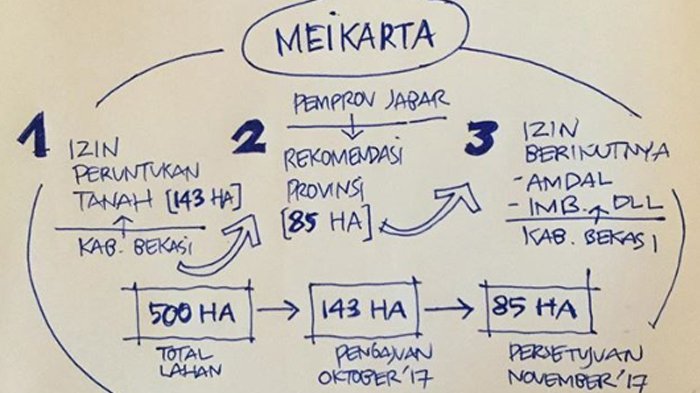 MEIKARTA
1
IZIN
PERUNTUKAN
TANAH [143 HA]
KAB. BEKASI
2
PEMPROV JABAR
REKOMENDASI
PROVINSI
[85 HA]
3
IZIN
BERIKUTNYA
- AMDAL
- IMB. DLL
KAB. BEKASI
500 HA → 143 HA → 85 HA
TOTAL
LAHAN
PENGAJUAN
OKTOBER '17
PERSETUJUAN
NOVEMBER '17